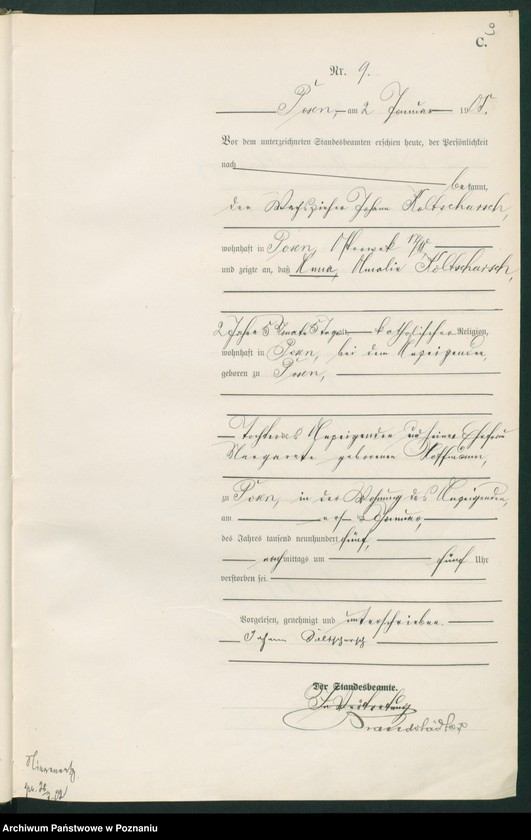 C.
Nr. 9.
Posen, am 2 Januar 1905.
Vor dem unterzeichneten Standesbeamten erschien heute, der Persönlichkeit
nach
bekannt,
der Johann Koltscharsch,
wohnhaft in Posen,
und zeigte an, daß Anna Amalie Koltscharsch,
2 Jahre 5 Monate 5 Tage alt, katholischer Religion,
wohnhaft in Posen, bei dem Anzeigenden,
geboren zu Posen,
Tochter des Anzeigenden und seiner Ehefrau
Margarete geborenen Hoffmann,
zu Posen, in der Wohnung des Anzeigenden,
am Januar,
des Jahres tausend neunhundert fünf,
mittags um fünf Uhr
verstorben sei.
Vorgelesen, genehmigt und unterschrieben.
Johann
Der Standesbeamte.
In Vertretung
Brandstädter
Archiwum Państwowe w Poznaniu